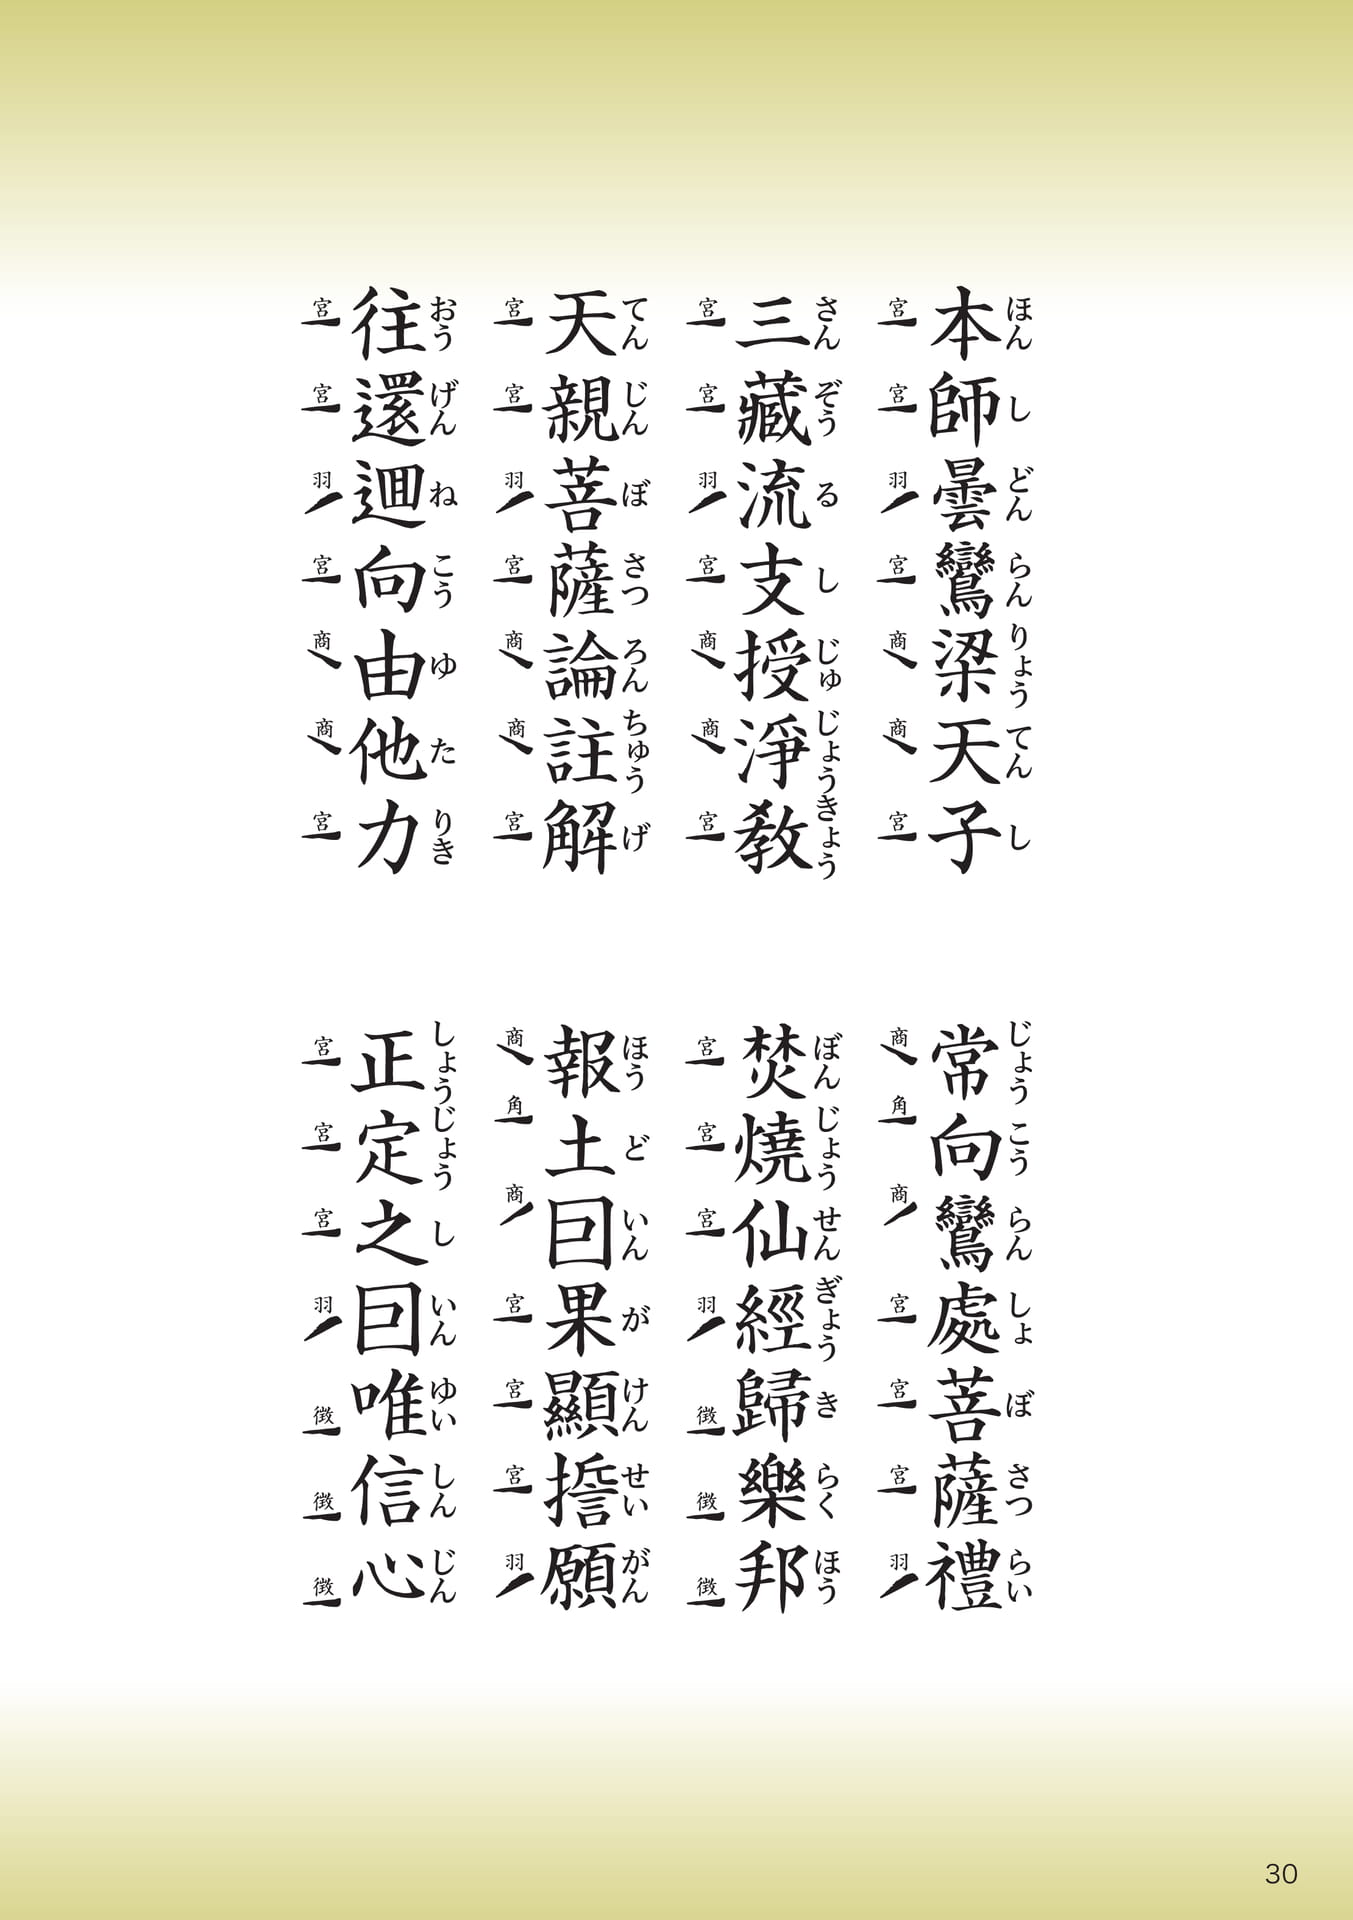 ほんしどんらんりょうてんし
本師曇鸞梁天子
宮宮羽宮商商宮
じょうこうらんしょぼさつらい
常向鸞處菩薩禮
商角商宮宮宮羽
さんぞうるしじゅじょうきょう
三藏流支授淨敎
宮宮羽宮商商宮
ぼんじょうせんぎょうきらくほう
焚燒仙經歸樂邦
宮宮宮羽徴徴徴
てんじんぼさつろんちゅうげ
天親菩薩論註解
宮宮羽宮商商宮
ほうどいんがけんせいがん
報土囙果顯誓願
商角商宮宮宮羽
おうげんねこうゆたりき
往還逥向由他力
宮宮羽宮商商宮
しょうじょうしいんゆいしんじん
正定之囙唯信心
宮宮宮羽徴徴徴
30